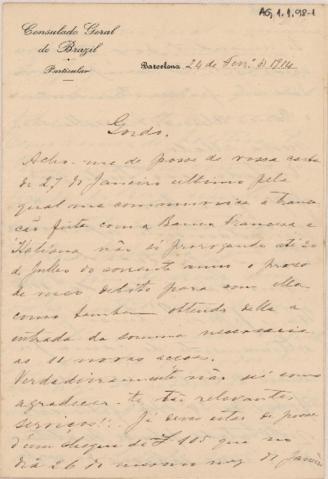 AG, 1.1.98-1
Consulado Geral
do Brazil
Particular
Barcelona, 24 de Fev.º de 1914
Gordo.
Acho-me de posse de vossa carta
de 27 de Janeiro ultimo pela
qual me communica a transa-
ção feita com a Banca Franceza e
Italiana não só prorogando até 20
de Julho do corrente anno o prazo
de meu debito para com ella
como tambem obtendo della a
entrada da somma necessaria
as 11 novas accões.
Verdadeiramente não sei como
agradecer-te tão relevantes
serviços! Já deves estar de posse
d'um cheque de £ 105 que no
dia 26 do mesmo mez de Janeiro